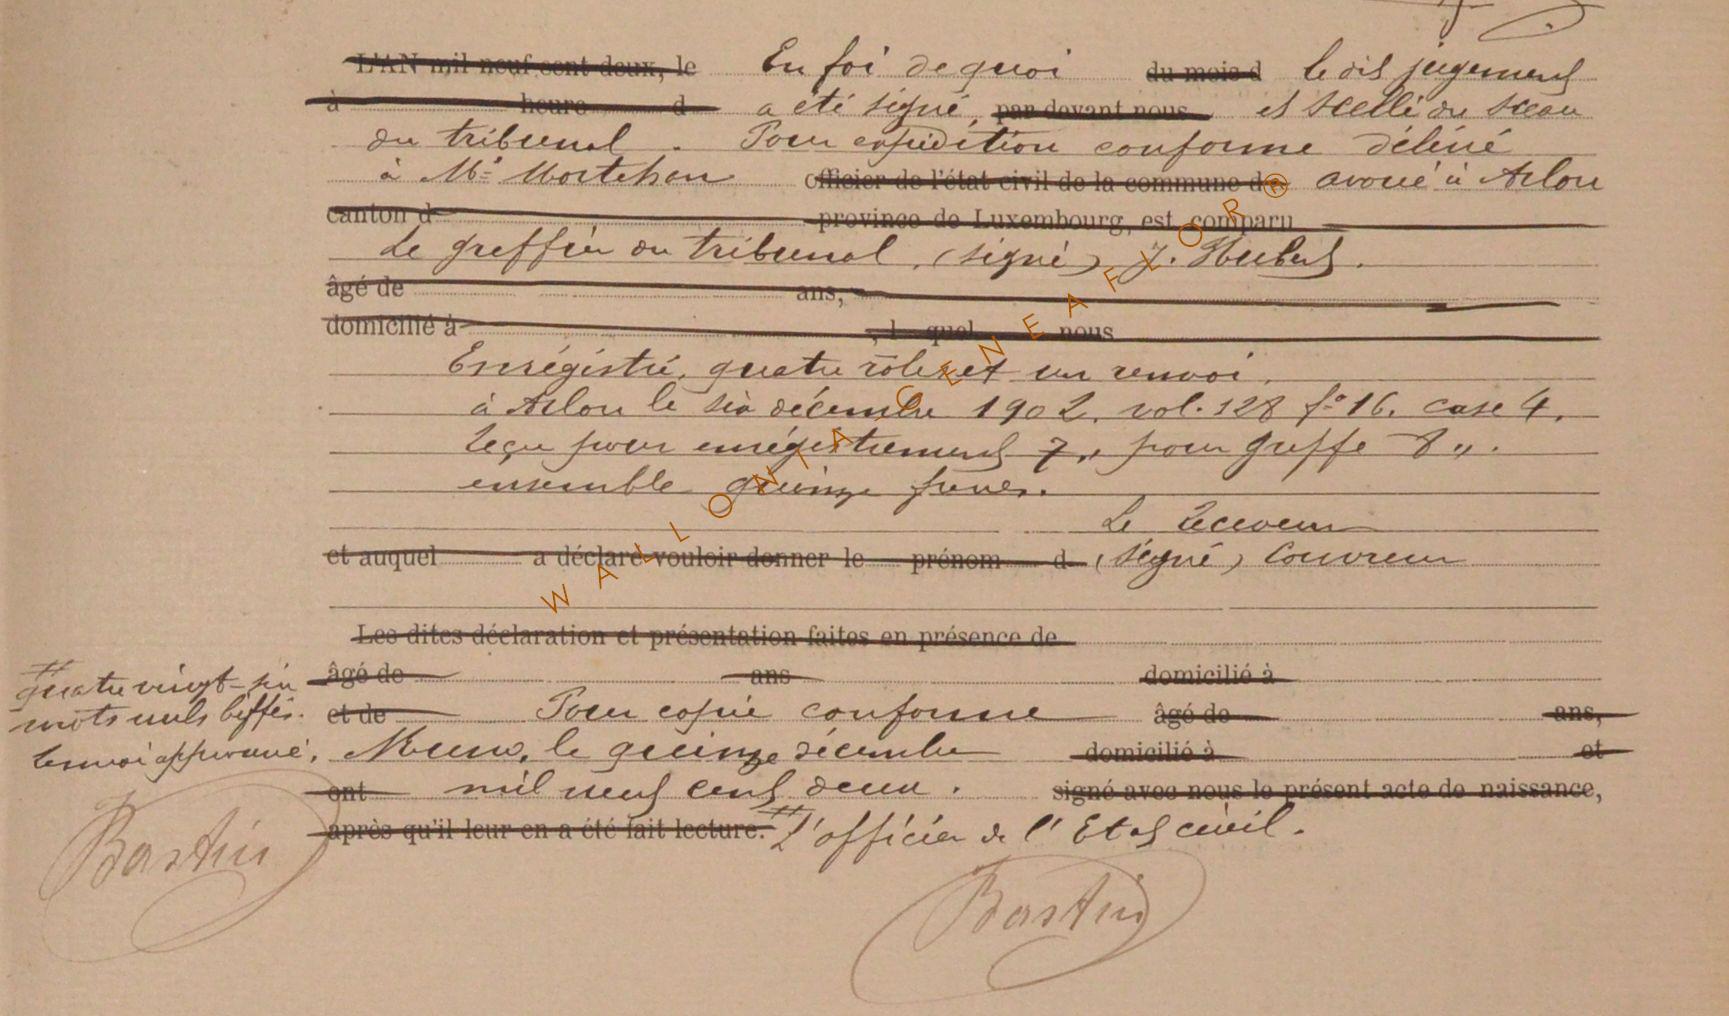 L'AN mil neuf cent deux, le En foi de quoi du mois d le dit jugement
à heure d a été signé, par devant nous et scellé du sceau
du tribunal. Pour expédition conforme délivré
à Me officier de l'état civil de la commune d avoué à Arlon
canton d province de Luxembourg, est comparu
Le greffier du tribunal, (signé) J. Hubert.
âgé de ans,
domicilié à , l quel nous
Enrégistré, quatre rôles et un renvoi,
à Arlon le six décembre 1902. vol. 128 fo 16. case 4.
reçu pour enrégistrement 7,, pour greffe 8,,.
ensemble quinze francs.
Le Receveur
et auquel a déclaré vouloir donner le prénom d (signé) Couvreur
Les dites déclaration et présentation faites en présence de
âgé de ans domicilié à
et de Pour copie conforme âgé de ans,
Muno, le quinze décembre domicilié à et
ont mil neuf cent deux. signé avec nous le présent acte de naissance,
après qu'il leur en a été fait lecture. # L'officier de l'Etat civil.
Bastin
#
quatre vingt-six
mots nuls biffés.
renvoi approuvé.
Bastin
WALLONIA GENEAFLOR®